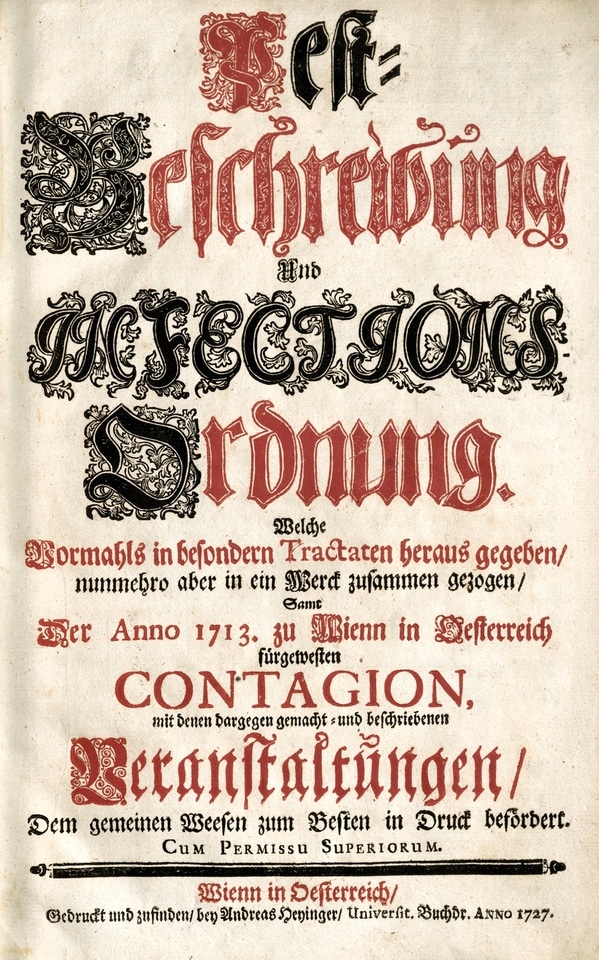 Pest-
Beschreibung/
Und
INFECTIONS-
Ordnung.
Welche
Vormahls in besondern Tractaten heraus gegeben/
nunmehro aber in ein Werck zusammen gezogen/
Samt
Der Anno 1713. zu Wienn in Oesterreich
fürgewesten
CONTAGION,
mit denen dargegen gemacht-und beschriebenen
Veranstaltungen/
Dem gemeinen Weesen zum Besten in Druck befördert.
CUM PERMISSU SUPERIORUM.
Wienn in Oesterreich/
Gedruckt und zufinden/ bey Andreas Heyinger/ Universit. Buchdr. ANNO 1727.